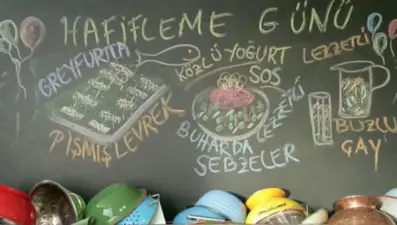 HAFİFLEME GÜNÜ
GREYFURTA
PİŞMİŞ LEVREK
KÖZLÜ YOĞURT
SOS
LEZZETLİ
BUHARDA
SEBZELER
LEZZETLİ
BUZLU
ÇAY